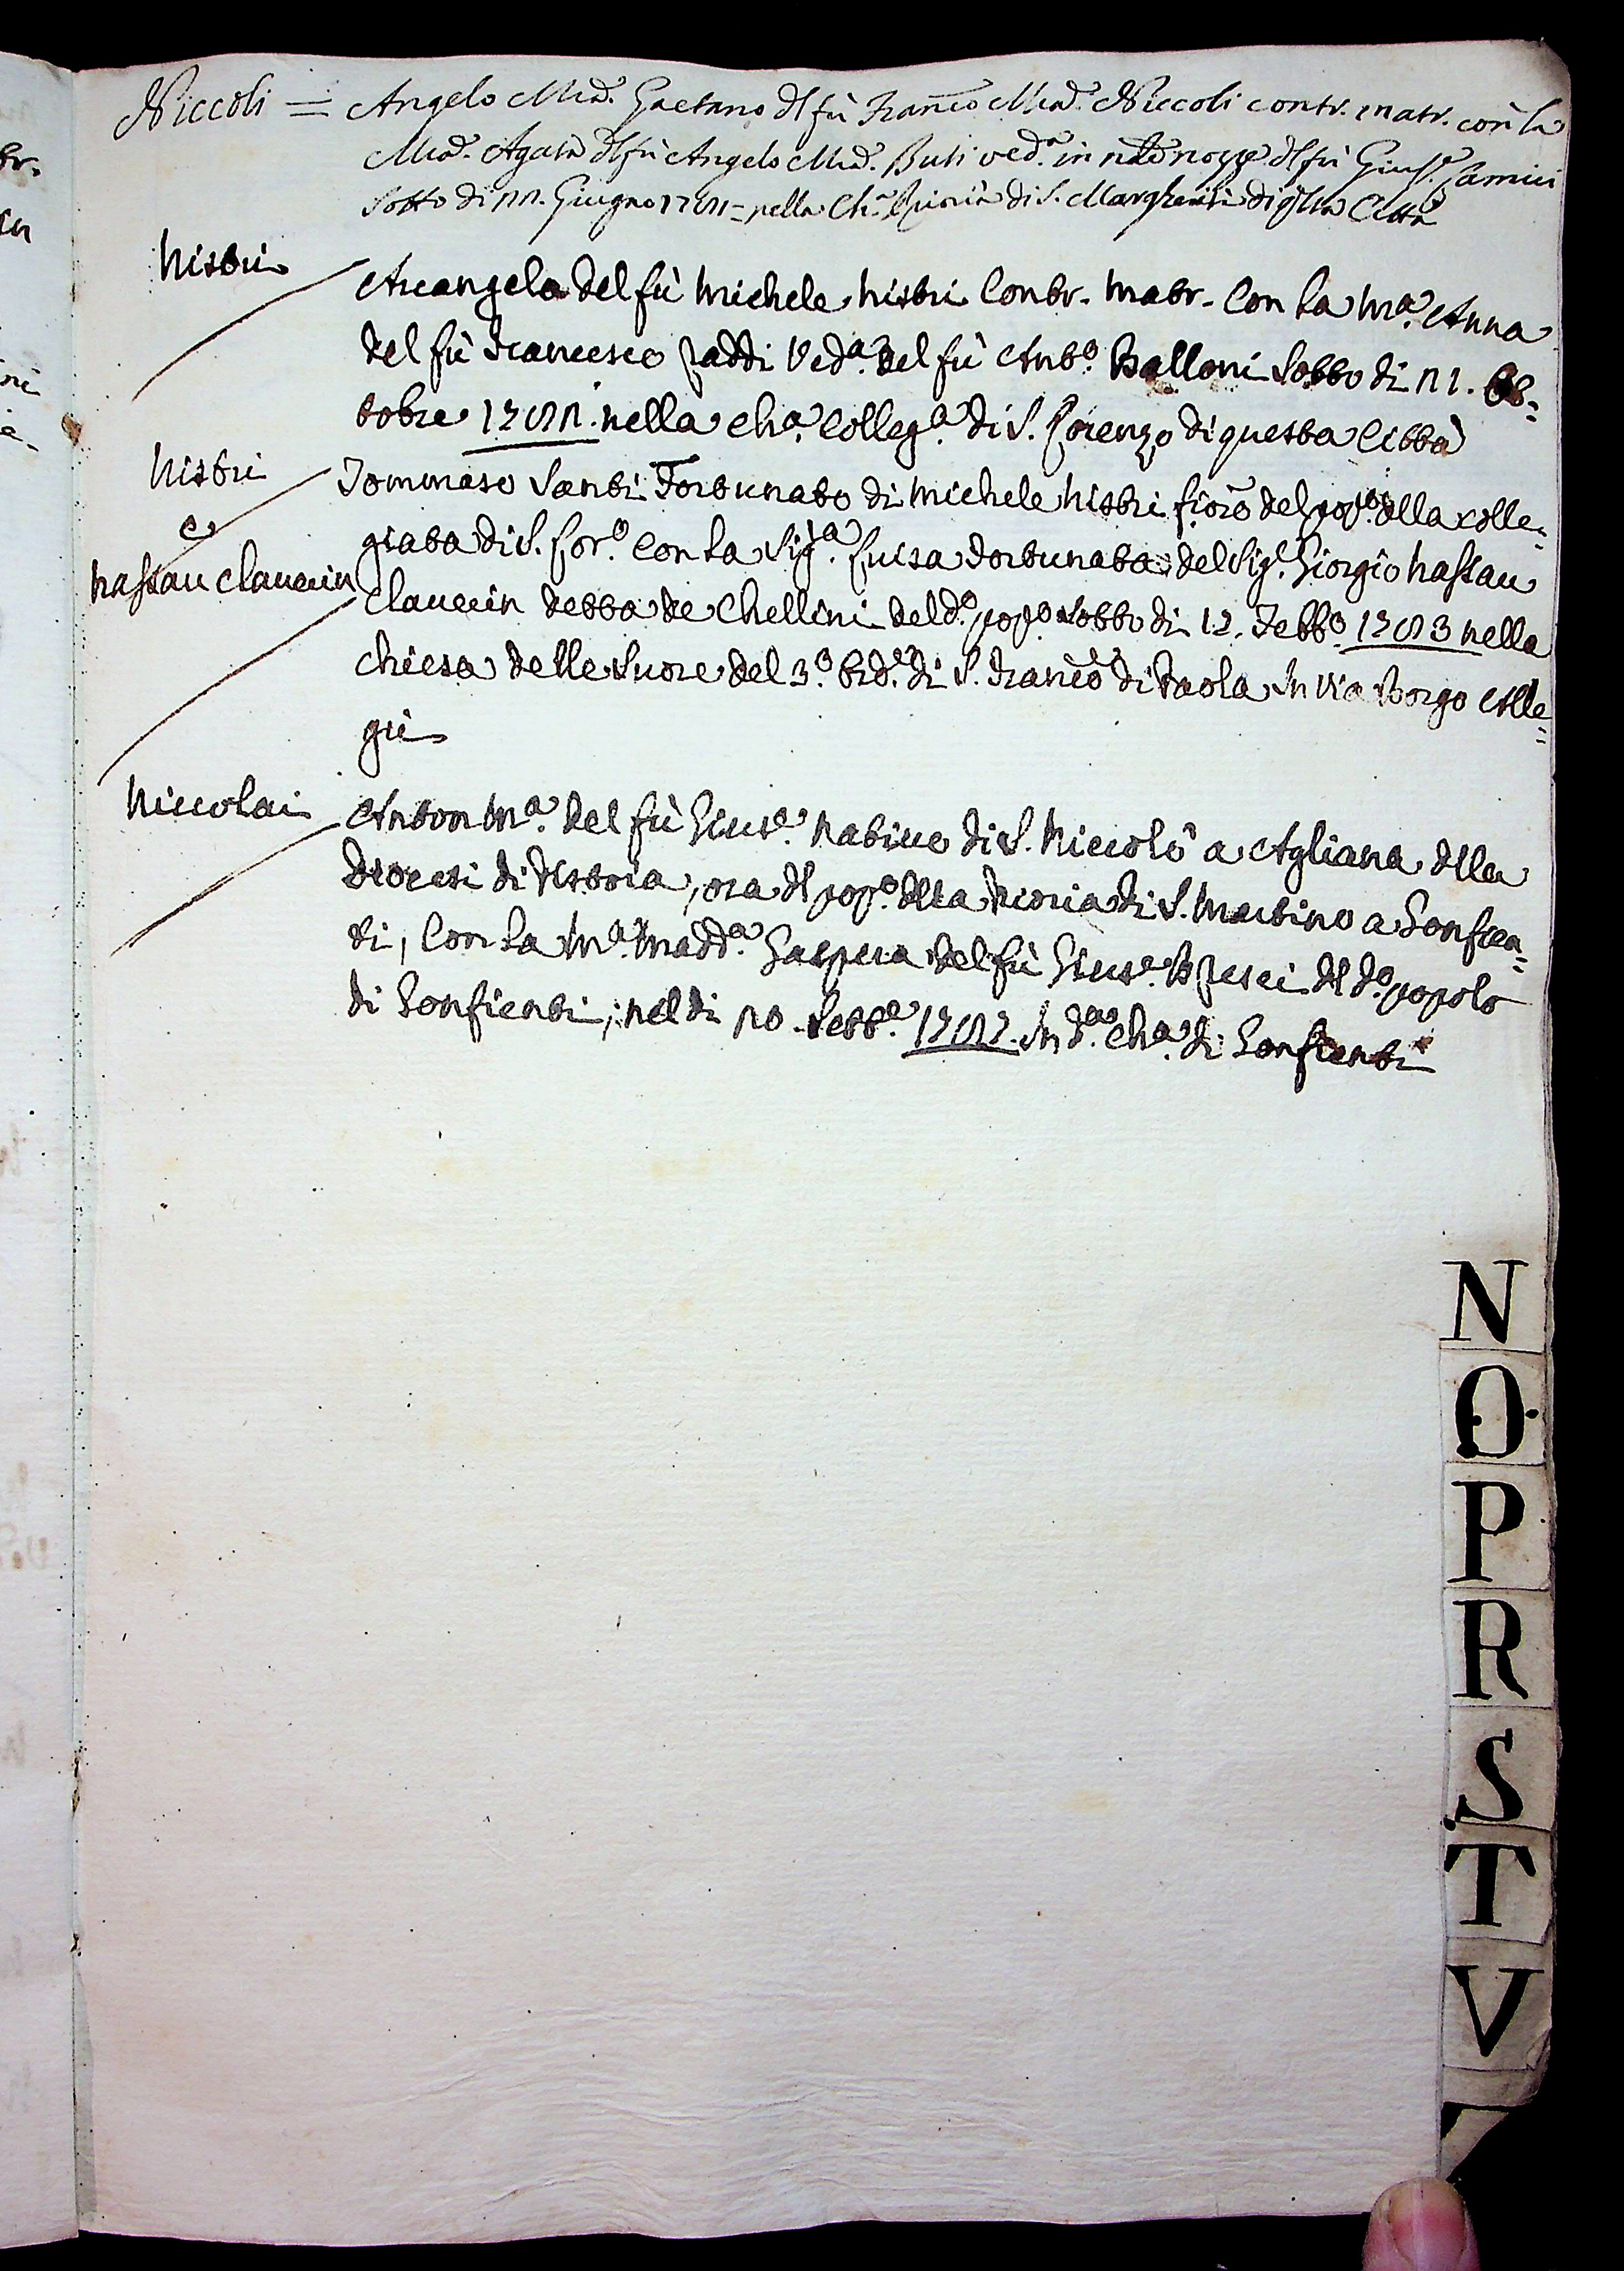 Niccoli = Angelo Ma͠. Gaetano dl fù Fran͠co Ma͠. Niccoli contr. matr. con la
Ma͠. Agata dl fù Angelo Ma͠. Buti ved.ª in nozze dl fù Gius.e Camici
Sotto di 11. Giugno = nella Ch.ª Prioria di S. Margherita di q͠ta Città
Nistri Arcangelo del fù Michele Nistri Contr. Matr. Con la Mª. Anna
del fù Francesco Taddi Ved.ª del fù Ant.º Balloni Sotto di 11. Ot=
tobre nella Chª. Colleg.ª di S. Lorenzo di questa Città
Nistri Tommaso Santi Fortunato di Michele Nistri fior͠o del pop.º della Colle=
e giata di S. Lor.º Con la Sig.ª Luisa Fortunata del Sig. Giorgio Nassau
Nassau Clavein Clavein detta de Chellini del d.º pop.º Sotto di 12. Febb.º nella
Chiesa delle Suore del 3.º Ord.e di S. Fran͠co di Paola In Via Borgo Alle=
gri
Niccolai Anton Mª. del fù Gius.e Nativo di S. Niccolò a Agliana della
Diocesi di Pistoia, ora dl pop.º della Prioria di S. Martino a Gonfien=
ti, Con la Mª. Madd.ª Gaspera del fù Gius.e dl d.º popolo
di Gonfienti, nel di 10. Sett.e In d.ª Chª. di Gonfienti
N
O
P
R
S
T
V